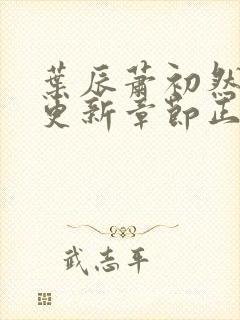 葉辰蕭初然
更新章節正
武志平